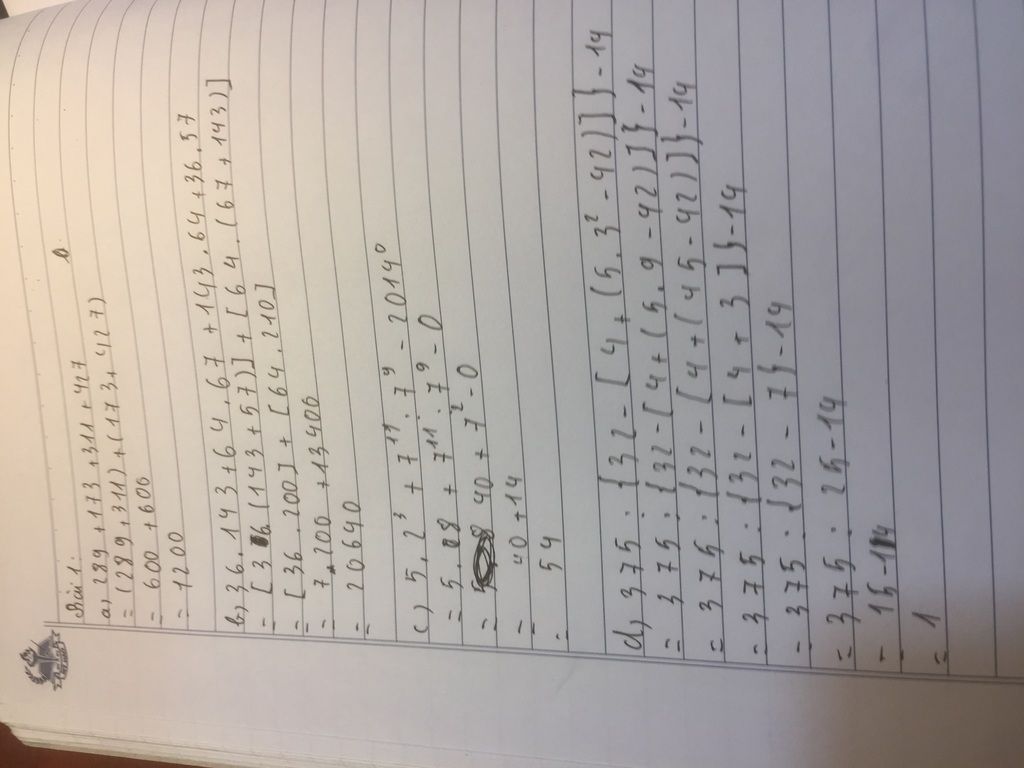 Bài 1:
a) 289+173+311+427
= (289+311)+(173+427)
= 600+606
= 1200
b) 36.143+64.67+143.64+36.57
= [36.(143+57)]+[64.(67+143)]
= [36.200]+[64.210]
= 7.200+13406
= 20640
c) 5.2³+7¹¹:7⁹-2014⁰
= 5.8+7¹¹:7⁹-0
= 40+7²-0
= 40+14
= 54
d) 375:{32-[4+(5.3²-42)]}-14
= 375:{32-[4+(5.9-42)]}-14
= 375:{32-[4+(45-42)]}-14
= 375:{32-[4+3]}-14
= 375:{32-7}-14
= 375:25-14
= 15-14
= 1